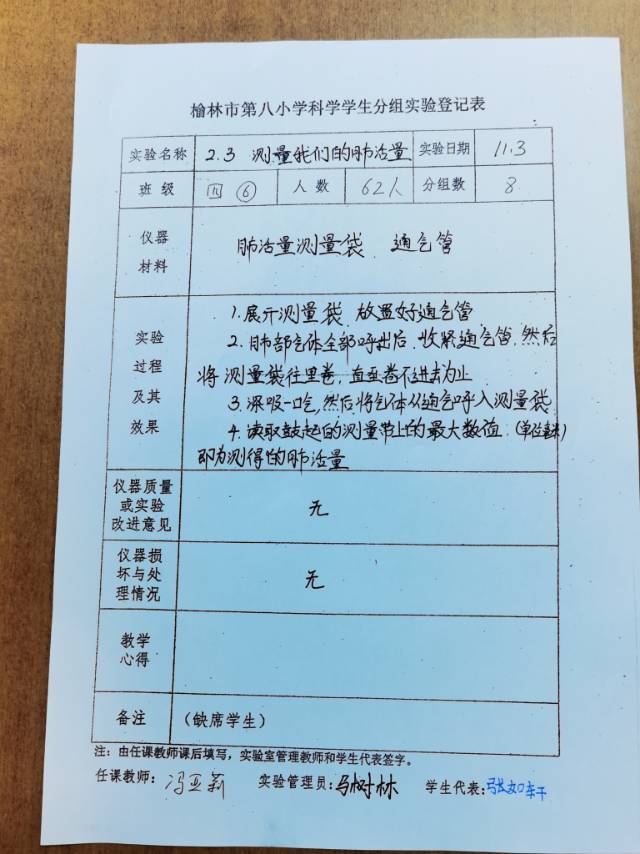 榆林市第八小学科学学生分组实验登记表
实验名称 2.3 测量我们的肺活量 实验日期 11.3
班级 四 ⑥ 人数 62人 分组数 8
仪器
材料
肺活量测量袋 通气管
实验
过程
及其
效果
1.展开测量袋 放置好通气管
2.肺部气体全部呼出后.收紧通气管.然后
将测量袋往里卷,直至卷不进去为止
3.深吸一口气,然后将气体从通气呼入测量袋
4.读取鼓起的测量袋上的最大数值.(单位毫升)
即为测得的肺活量
仪器质量
或实验
改进意见
无
仪器损
坏与处
理情况
无
教学
心得
备注 (缺席学生)
注:由任课教师课后填写,实验室管理教师和学生代表签字。
任课教师: 冯亚莉 实验管理员:马树林 学生代表: